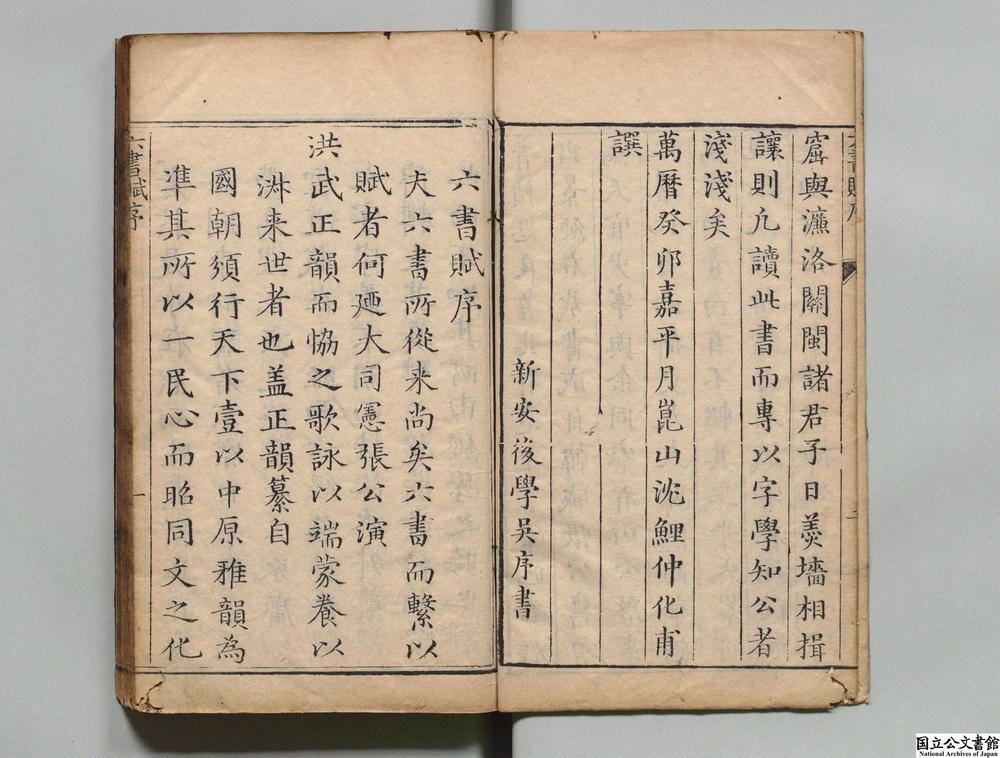 窟與濂洛關閩諸君子日羹墻相揖
讓則凢讀此書而專以字學知公者
淺淺矣
萬曆癸卯嘉平月崑山沈鯉仲化甫
譔
新安後學吳序書
六書賦序
夫六書所從来尚矣六書而繫以
賦者何廼大司憲張公演
洪武正韻而恊之歌詠以端蒙養以
淑来世者也盖正韻纂自
國朝頒行天下壹以中原雅韻為
凖其所以一民心而昭同文之化
六書賦序
一
国立公文書館
National Archives of Japan